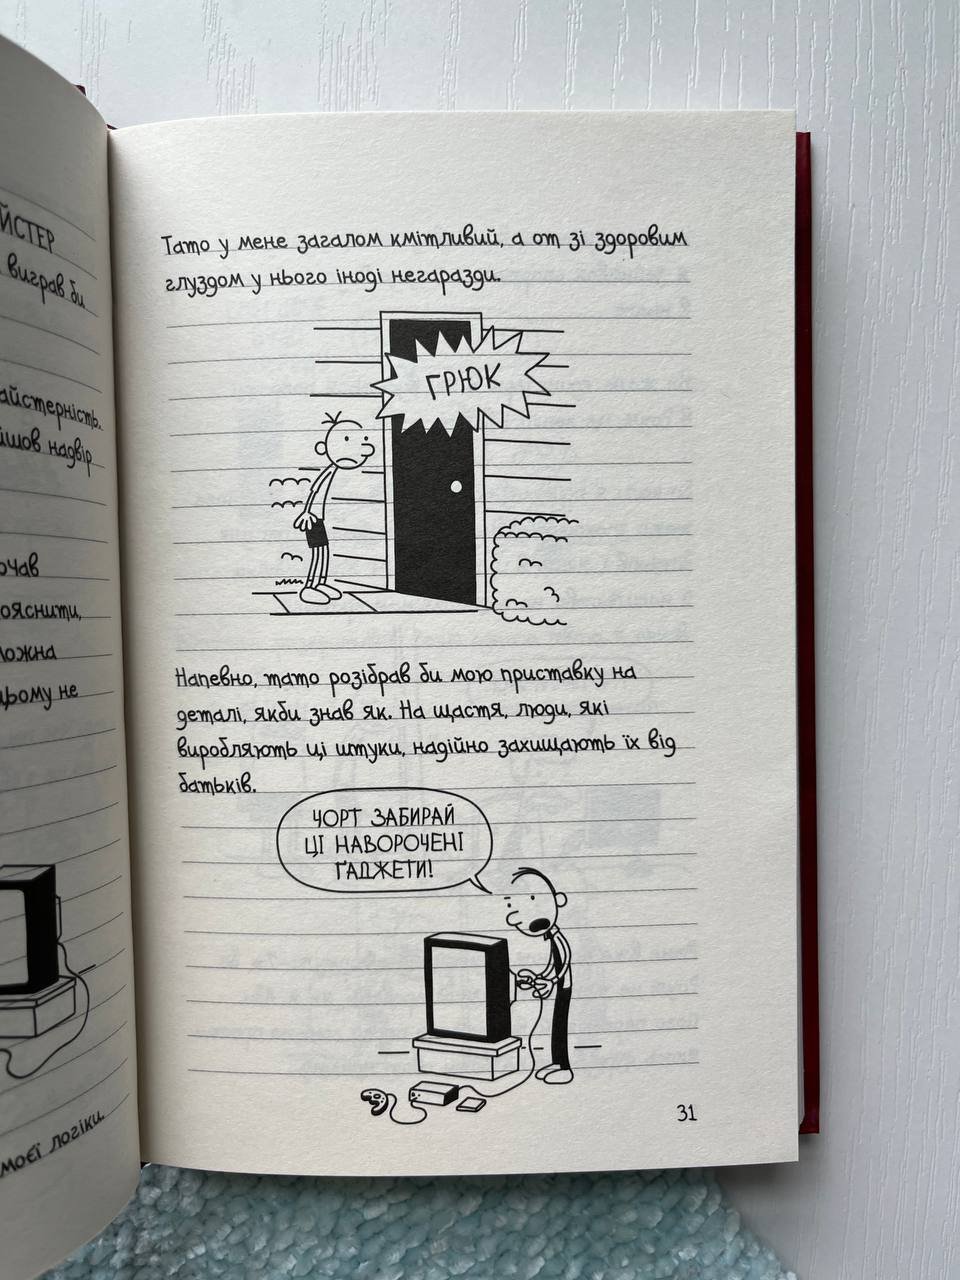 ЙСТЕР
виграв би
айстерність.
йшов надвір
очав
ояснити,
можна
цьому не
моєї логіки.
Тато у мене загалом кмітливий, а от зі здоровим
глуздом у нього іноді негаразди.
ГРЮК
Напевно, тато розібрав би мою приставку на
деталі, якби знав як. На щастя, люди, які
виробляють ці штуки, надійно захищають їх від
батьків.
ЧОРТ ЗАБИРАЙ
ЦІ НАВОРОЧЕНІ
ҐАДЖЕТИ!
31